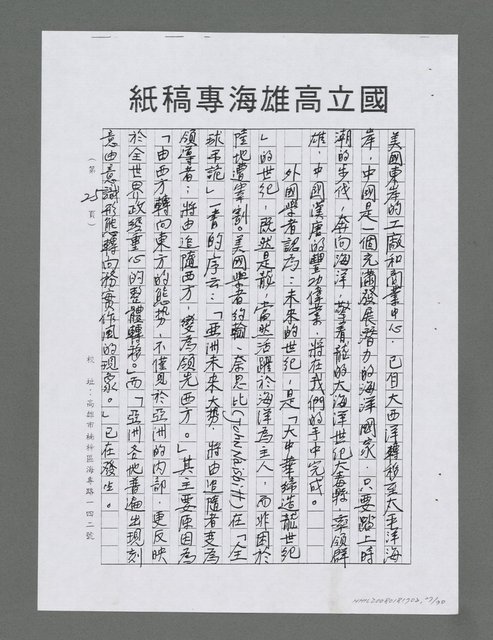 國立高雄海專稿紙
美國東岸的工廠和商業中心,已由大西洋轉移至太平洋海
岸,中國是一個充滿發展潛力的海洋國家,只要踏上時
潮的步伐,奔向海洋,擎着龍的大海洋世紀大纛,率領群
雄,中國漢唐的豐功偉業,將在我們的手中完成。
外國學者認為:未來的世紀,是「大中華締造龍世紀
」的世紀,既然是龍,當然活躍於海洋為主人,而非困於
陸地遭宰割。美國學者約翰.奈思比(John Naisbitt)在「全
球弔詭」一書的序云:「亞洲未來大勢,將由追隨者變為
領導者;將由追隨西方,變為領先西方。」其主要原因為
「由西方轉向東方的態勢,不僅見於亞洲的內部,更反映
於全世界政經重心的整體轉移。」而「亞洲各地普遍出現刻
意由意識形態轉向務實作風的現象。」已在發生。
(第25頁)
校址:高雄市楠梓區海專路一四二號
NMTL20080181702,27/30